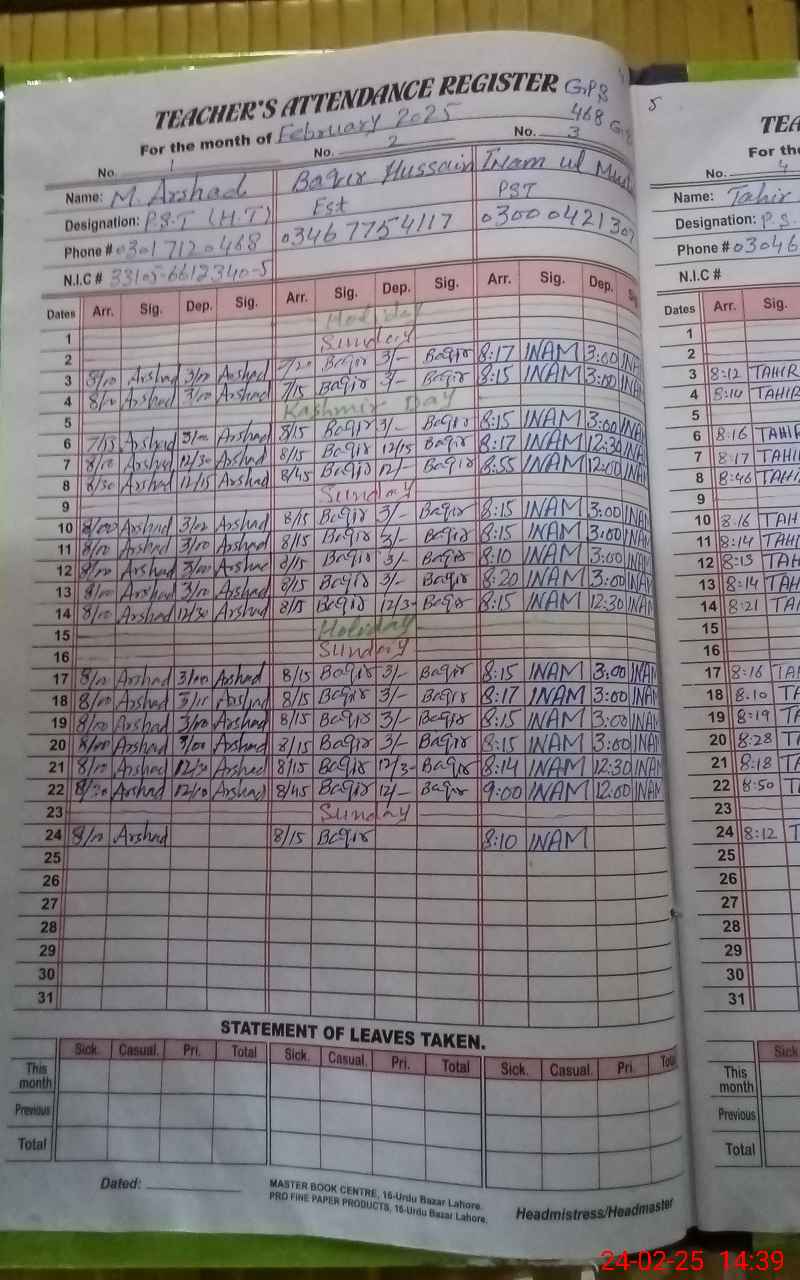 TEACHER'S ATTENDANCE REGISTER GPS
For the month of February 2025 468 GB
5
No. 1 No. 2 No. 3
Name: M. Arshad Baqir Hussain Inam ul
Designation: P.S.T (H.T) Est PST
Phone # 03017120468 03467754117 0300042130
N.I.C # 33105-6612340-5
Dates Arr. Sig. Dep. Sig. Arr. Sig. Dep. Sig. Arr. Sig. Dep.
1 Holiday
2 Sunday
3 8/00 Arshad 3/00 Arshad 7/20 Baqir 3/- Baqir 8:17 INAM 3:00 INA
4 8/00 Arshad 3/00 Arshad 7/15 Baqir 3/- Baqir 8:15 INAM 3:00 INA
5 Kashmir Day
6 Arshad 3/00 Arshad 8/15 Baqir 3/- Baqir 8:15 INAM 3:00
7 8/00 Arshad 12/30 Arshad 8/15 Baqir 12/15 Baqir 8:17 INAM 12:30 INA
8 8/30 Arshad 12/15 Arshad 8/45 Baqir 12/- Baqir 8:55 INAM 12:00 INA
9 Sunday
10 8/00 Arshad 3/00 Arshad 8/15 Baqir 3/- Baqir 8:15 INAM 3:00 INA
11 8/00 Arshad 3/00 Arshad 8/15 Baqir 3/- Baqir 8:15 INAM 3:00 INA
12 8/00 Arshad 3/00 Arshad 8/15 Baqir 3/- Baqir 8:10 INAM 3:00 INA
13 8/00 Arshad 3/00 Arshad 8/15 Baqir 3/- Baqir 8:20 INAM 3:00 INA
14 8/00 Arshad 12/30 Arshad 8/15 Baqir 12/3- Baqir 8:15 INAM 12:30 INA
15 Holiday
16 Sunday
17 8/00 Arshad 3/00 Arshad 8/15 Baqir 3/- Baqir 8:15 INAM 3:00 INAM
18 8/00 Arshad Arshad 8/15 Baqir 3/- Baqir 8:17 INAM 3:00 INAM
19 8/00 Arshad 3/00 Arshad 8/15 Baqir 3/- Baqir 8:15 INAM 3:00 INAM
20 8/00 Arshad 3/00 Arshad 8/15 Baqir 3/- Baqir 8:15 INAM 3:00 INAM
21 8/00 Arshad 12/30 Arshad 8/15 Baqir 12/3- Baqir 8:14 INAM 12:30 INAM
22 8/30 Arshad 12/10 Arshad 8/45 Baqir 12/- Baqir 9:00 INAM 12:00 INAM
23 Sunday
24 8/00 Arshad 8/15 Baqir 8:10 INAM
25
26
27
28
29
30
31
STATEMENT OF LEAVES TAKEN.
Sick. Casual. Pri. Total Sick. Casual. Pri. Total Sick. Casual. Pri. Total
This month
Previous
Total
Dated:
MASTER BOOK CENTRE, 16-Urdu Bazar Lahore.
PRO FINE PAPER PRODUCTS, 16-Urdu Bazar Lahore.
Headmistress/Headmaster
TEA
For the
No. 4
Name: Tahir
Designation: P.S.
Phone # 03046
N.I.C #
Dates Arr. Sig.
1
2
3 8:12 TAHIR
4 8:14 TAHIR
5
6 8:16 TAHIR
7 8:17 TAHI
8 8:46 TAHI
9
10 8:16 TAH
11 8:14 TAH
12 8:13 TAH
13 8:14 TAH
14 8:21 TAH
15
16
17 8:16 TA
18 8:10 TA
19 8:19 TA
20 8:28 TA
21 8:18 TA
22 8:50 TA
23
24 8:12 T
25
26
27
28
29
30
31
Sick
This month
Previous
Total
24-02-25 14:39